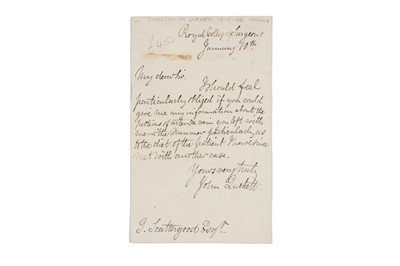 Royal Coll. of Surgeons
January 10th
My dear Sir,
I should feel
particularly obliged if you could
give me any information about the
portions of vein you left with
me the Summer particularly as
to the diet of the patient
met with another case.
Yours very truly
John Quekett
J. Scattergood Esqr.